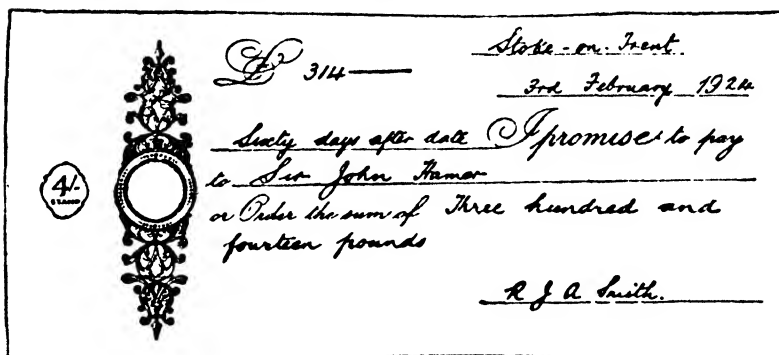 Stoke-on-Trent
£ 314 ——
3rd February 1924
Sixty days after date I promise to pay
4/-
STAMP
to Sir John Hamar
or Order the sum of Three hundred and
fourteen pounds
R J A Smith.